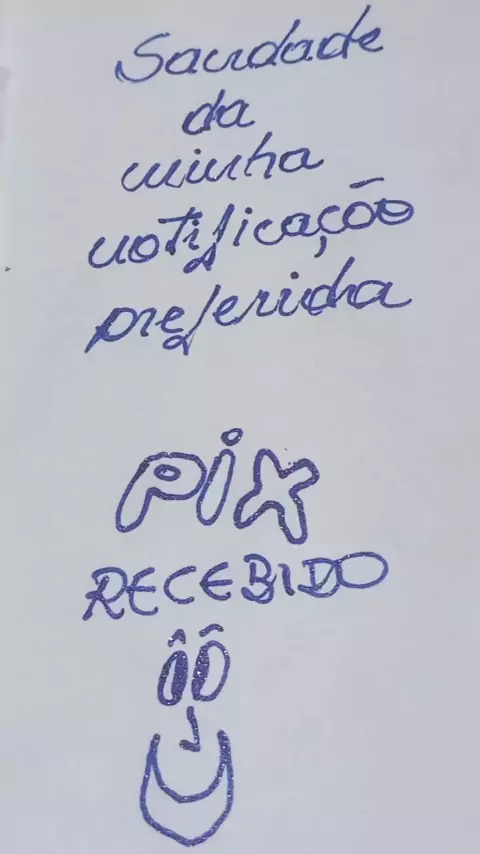 Saudade
da
minha
notificação
preferida
PiX
RECEBIDO